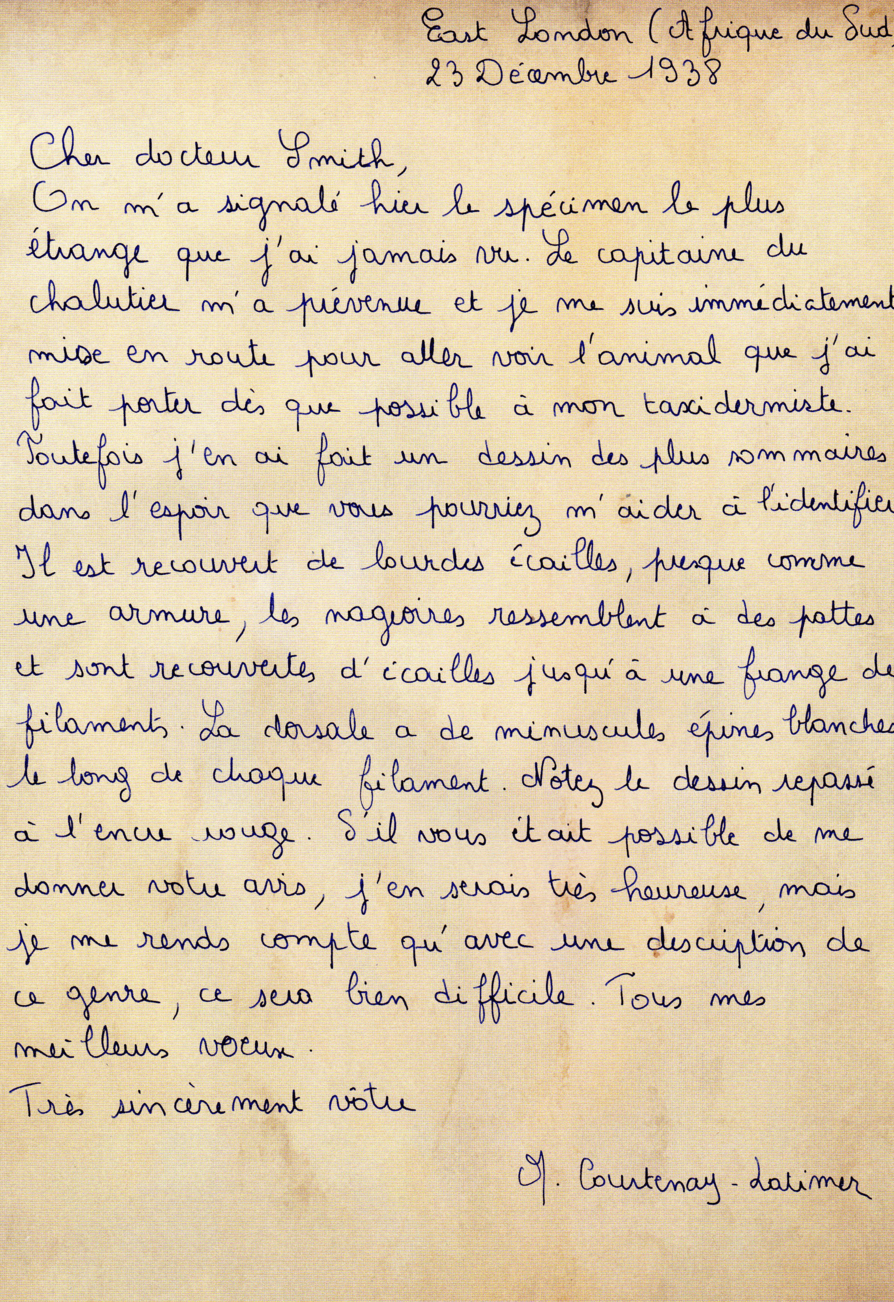 East London (Afrique du Sud
23 Décembre 1938
Cher docteur Smith,
On m'a signalé hier le spécimen le plus
étrange que j'ai jamais vu. Le capitaine du
chalutier m'a prévenue et je me suis immédiatement
mise en route pour aller voir l'animal que j'ai
fait porter dès que possible à mon taxidermiste.
Toutefois j'en ai fait un dessin des plus sommaires
dans l'espoir que vous pourriez m'aider à l'identifier
Il est recouvert de lourdes écailles, presque comme
une armure, les nageoires ressemblent à des pattes
et sont recouvertes d'écailles jusqu'à une frange de
filaments. La dorsale a de minuscules épines blanches
le long de chaque filament. Notez le dessin repassé
à l'encre rouge. S'il vous était possible de me
donner votre avis, j'en serais très heureuse, mais
je me rends compte qu'avec une description de
ce genre, ce sera bien difficile. Tous mes
meilleurs voeux.
Très sincèrement vôtre
M. Courtenay-Latimer